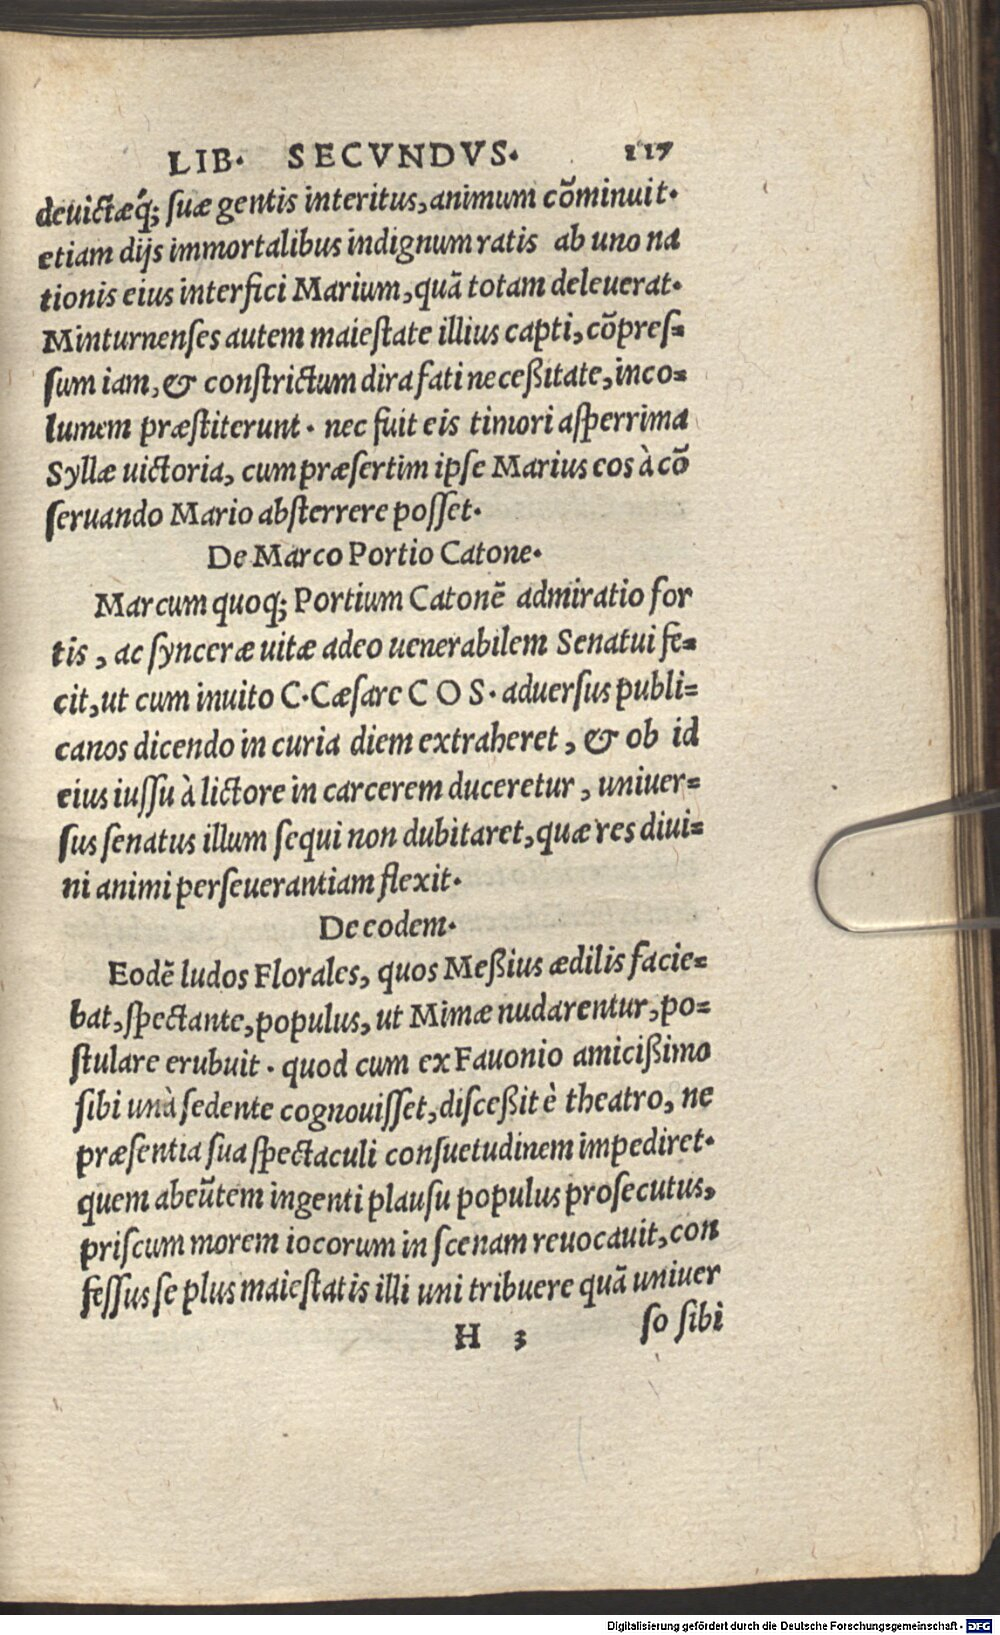 LIB. SECVNDVS. 117
deuictæq́; suæ gentis interitus, animum cõminuit.
etiam dijs immortalibus indignum ratis ab uno na
tionis eius interfici Marium, quã totam deleuerat.
Minturnenses autem maiestate illius capti, cõpres=
sum iam, & constrictum dira fati neceßitate, inco=
lumem præstiterunt. nec fuit eis timori asperrima
Syllæ uictoria, cum præsertim ipse Marius eos à cõ
seruando Mario absterrere posset.
De Marco Portio Catone.
Marcum quoq; Portium Catonẽ admiratio for
tis, ac synceræ uitæ adeo uenerabilem Senatui fe=
cit, ut cum inuito C. Cæsare C O S. aduersus publi=
canos dicendo in curia diem extraheret, & ob id
eius iussu à lictore in carcerem duceretur, uniuer=
sus senatus illum sequi non dubitaret, quæ res diui=
ni animi perseuerantiam flexit.
De eodem.
Eodẽ ludos Florales, quos Meßius ædilis facie=
bat, spectante, populus, ut Mimæ nudarentur, po=
stulare erubuit. quod cum ex Fauonio amicißimo
sibi unà sedente cognouisset, disceßit è theatro, ne
præsentia sua spectaculi consuetudinem impediret.
quem abeũtem ingenti plausu populus prosecutus,
priscum morem iocorum in scenam reuocauit, con
fessus se plus maiestatis illi uni tribuere quã uniuer
H 3 so sibi
Digitalisierung gefördert durch die Deutsche Forschungsgemeinschaft - DFG